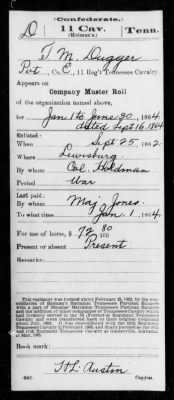 (Confederate.)
D 11 Cav. Tenn.
(Holman's.)
T M Dugger
Pvt, Co. C, 11 Reg't Tennessee Cavalry.
Appears on
Company Muster Roll
of the organization named above,
for Jan 1 to June 30, 1864.
dated Sept 16, 1864
Enlisted:
When Sept 25, 1862.
Where Lewisburg
By whom Col. Holdman
Period War
Last paid:
By whom Maj Jones.
To what time Jan. 1, 1864.
For use of horse, $ 72 80/100
Present or absent Present
Remarks:
Book mark:
H L Austin
Copyist.